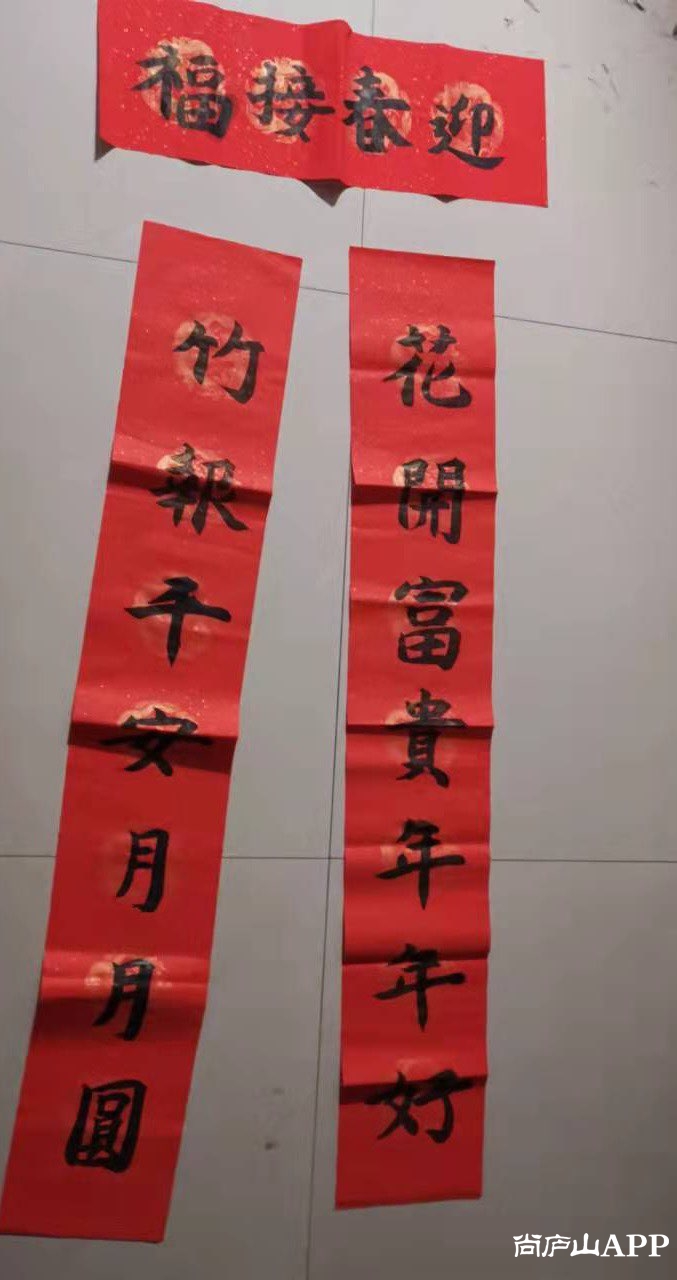 迎春接福
花開富貴年年好
竹報平安月月圓
尚庐山APP